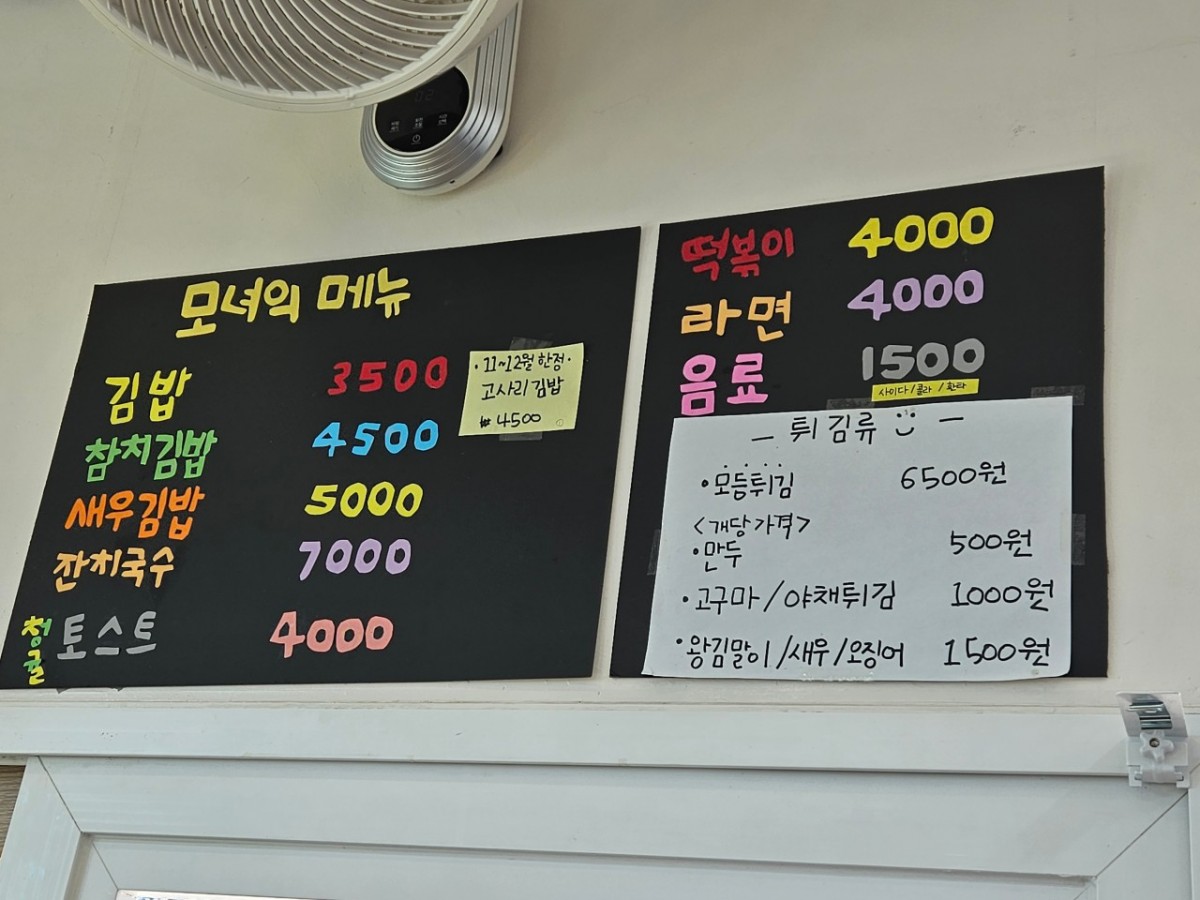 모녀의 메뉴
김밥 3500
참치김밥 4500
새우김밥 5000
잔치국수 7000
청귤 토스트 4000
·11~12월 한정·
고사리 김밥
₩4500
떡볶이 4000
라면 4000
음료 1500
사이다/콜라/환타
– 튀김류 –
·모듬튀김 6500원
<개당 가격>
·만두 500원
·고구마/야채튀김 1000원
·왕김말이/새우/오징어 1500원